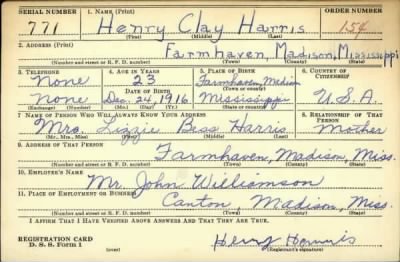 SERIAL NUMBER 1. NAME (Print) ORDER NUMBER
771 Henry Clay Harris 154
(First) (Middle) (Last)
2. ADDRESS (Print)
Farmhaven, Madison, Mississippi
(Number and street or R. F. D. number) (Town) (County) (State)
3. TELEPHONE 4. AGE IN YEARS 5. PLACE OF BIRTH 6. COUNTRY OF CITIZENSHIP
None 23 Farmhaven, Madison
DATE OF BIRTH (Town or county)
None Dec. 24, 1916 Mississippi U.S.A.
(Exchange) (Number) (Mo.) (Day) (Yr.) (State or country)
7. NAME OF PERSON WHO WILL ALWAYS KNOW YOUR ADDRESS 8. RELATIONSHIP OF THAT PERSON
Mrs. Lizzie Bess Harris Mother
(Mr., Mrs., Miss) (First) (Middle) (Last)
9. ADDRESS OF THAT PERSON
Farmhaven, Madison, Miss.
(Number and street or R. F. D. number) (Town) (County) (State)
10. EMPLOYER'S NAME
Mr. John Williamson
11. PLACE OF EMPLOYMENT OR BUSINESS
Canton, Madison, Miss.
(Number and street or R. F. D. number) (Town) (County) (State)
I AFFIRM THAT I HAVE VERIFIED ABOVE ANSWERS AND THAT THEY ARE TRUE.
REGISTRATION CARD
D. S. S. Form 1 (over) Henry Harris
(Registrant's signature)